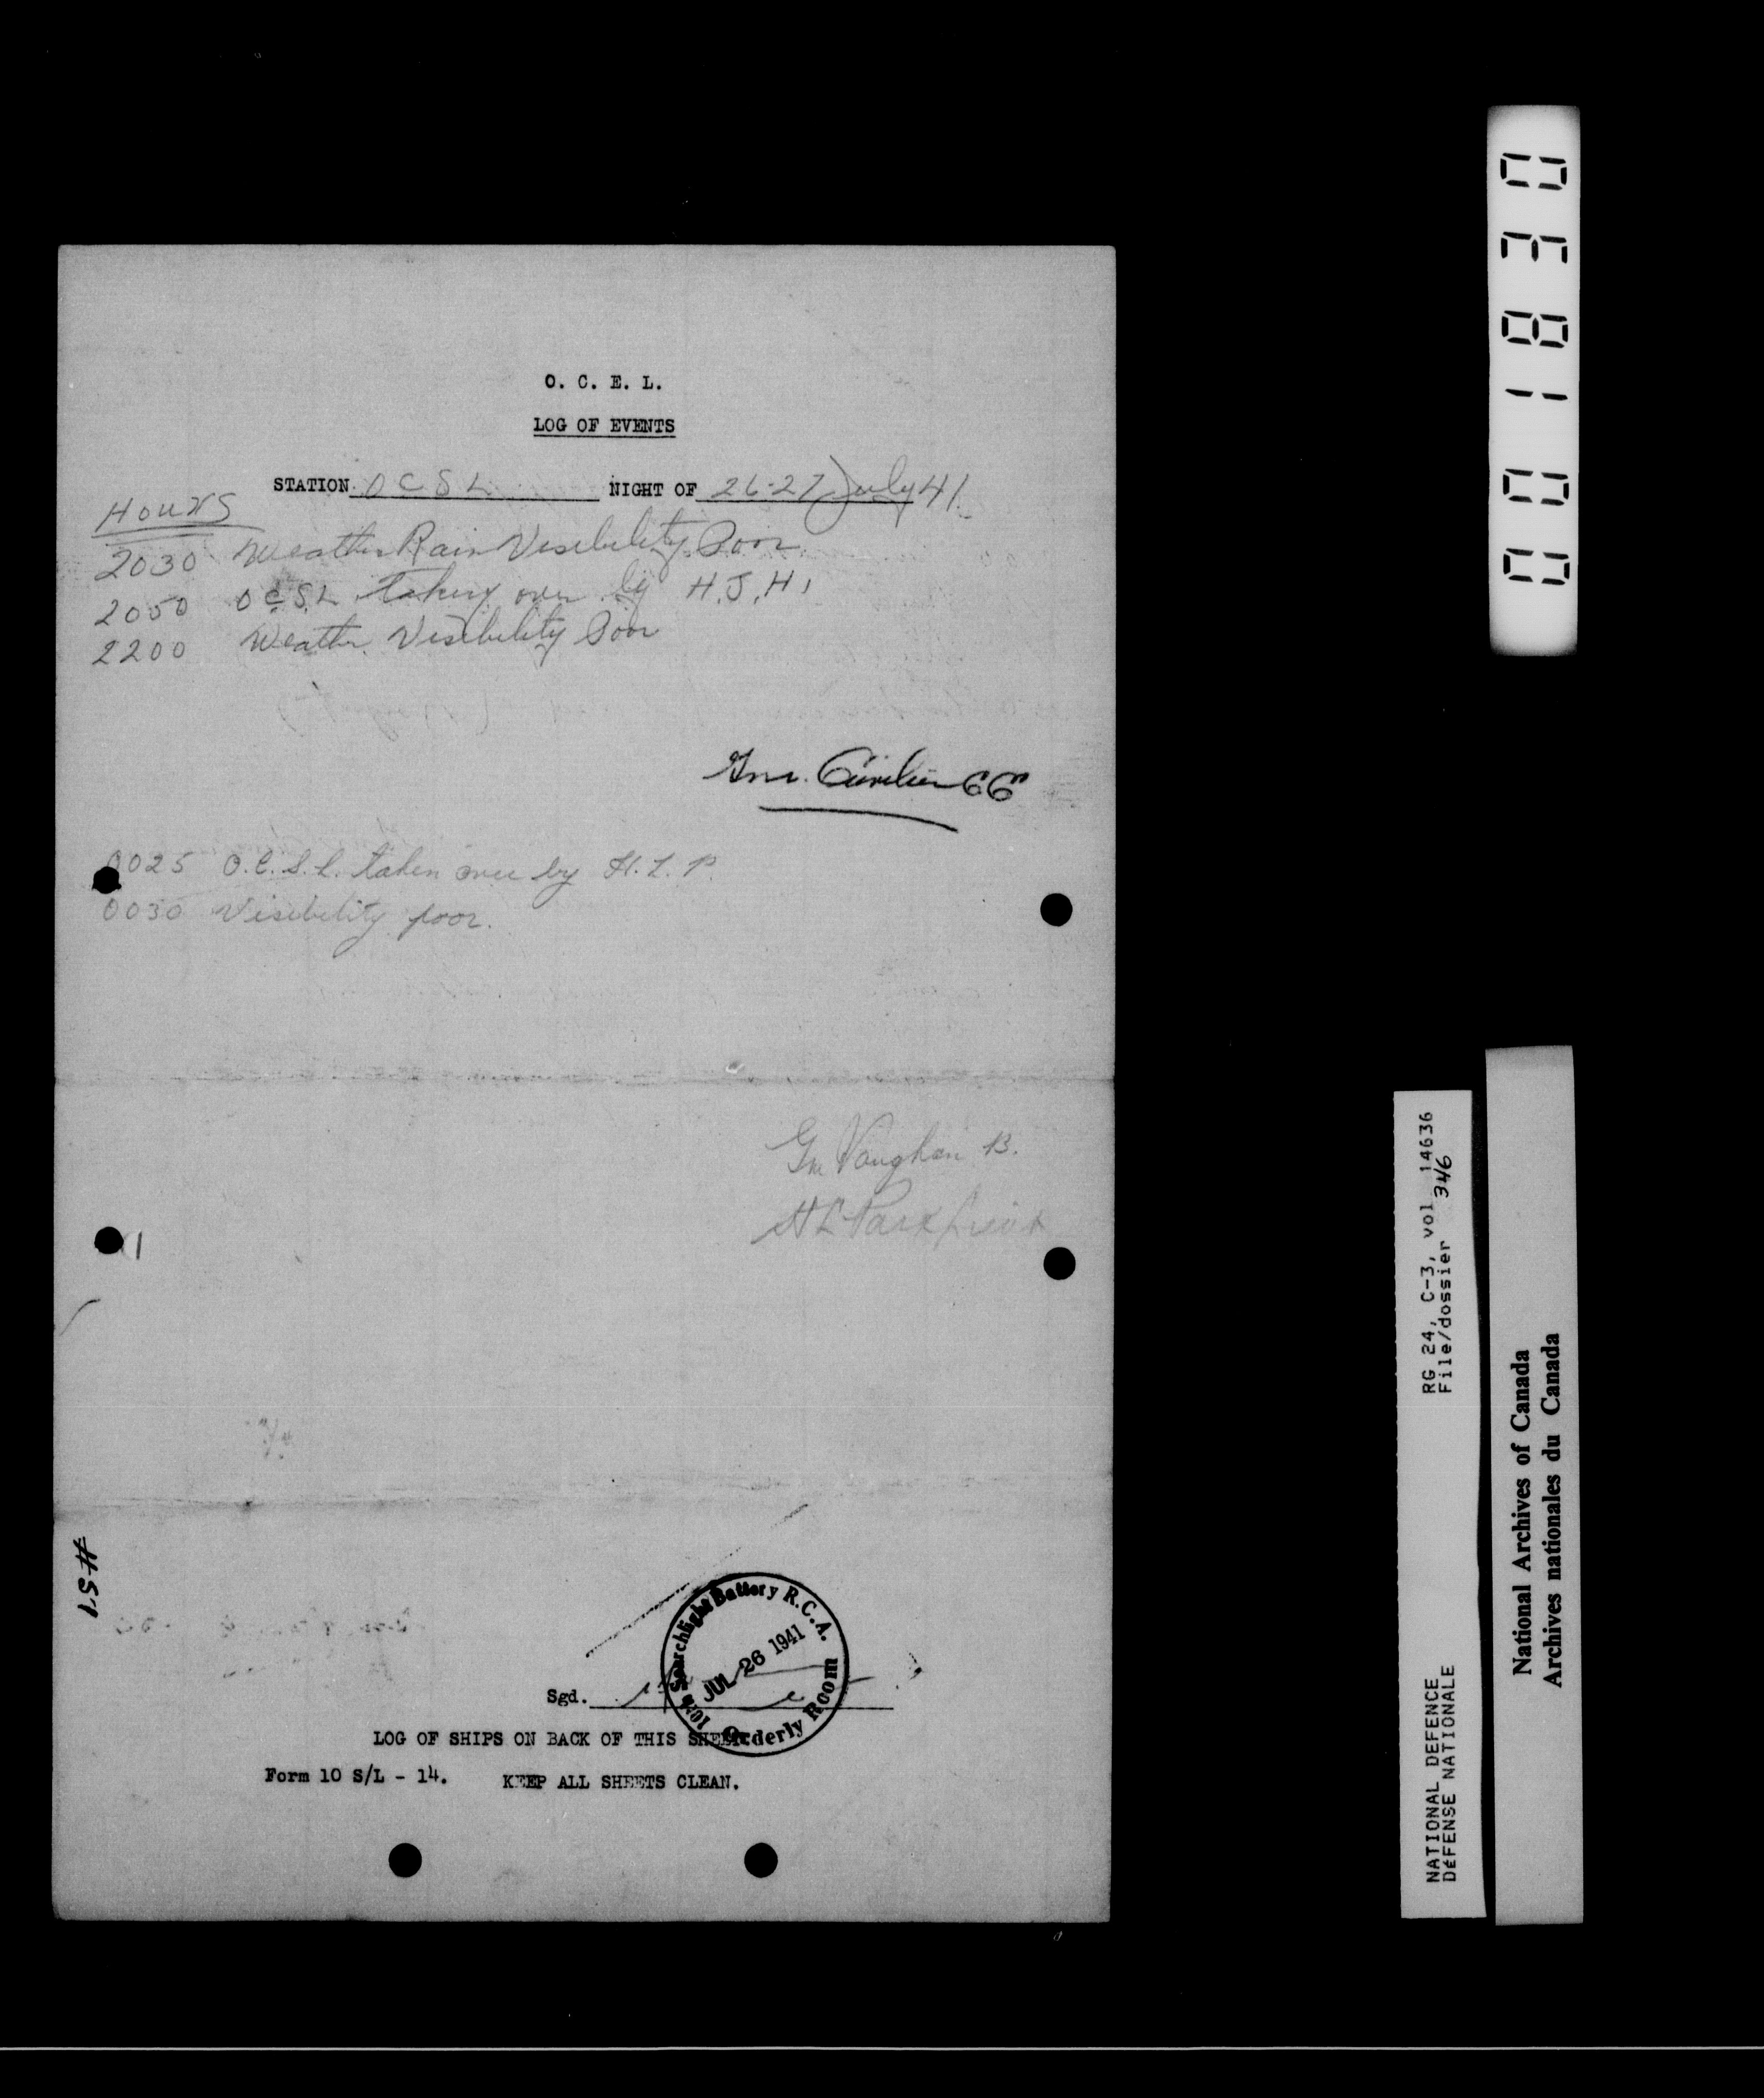 O. C. E. L.
LOG OF EVENTS
STATION O C S L NIGHT OF 26-27 July 41.
HOURS
2030 Weather Rain Visibility Poor
2050 O C S. L taking over by H. J. H.
2200 Weather. Visibility Poor
Gnr.
0025 O. C. S. L. taken over by H. L. P.
0030 Visibility poor.
Gnr Vaughan B.
H L Park Lieut
#51
10th Searchlight Battery R.C.A.
JUL 26 1941
Orderly Room
Sgd.
LOG OF SHIPS ON BACK OF THIS SHEET.
Form 10 S/L - 14. KEEP ALL SHEETS CLEAN.
001830
RG 24, C-3, vol 14636
File/dossier 346
NATIONAL DEFENCE
DÉFENSE NATIONALE
National Archives of Canada
Archives nationales du Canada